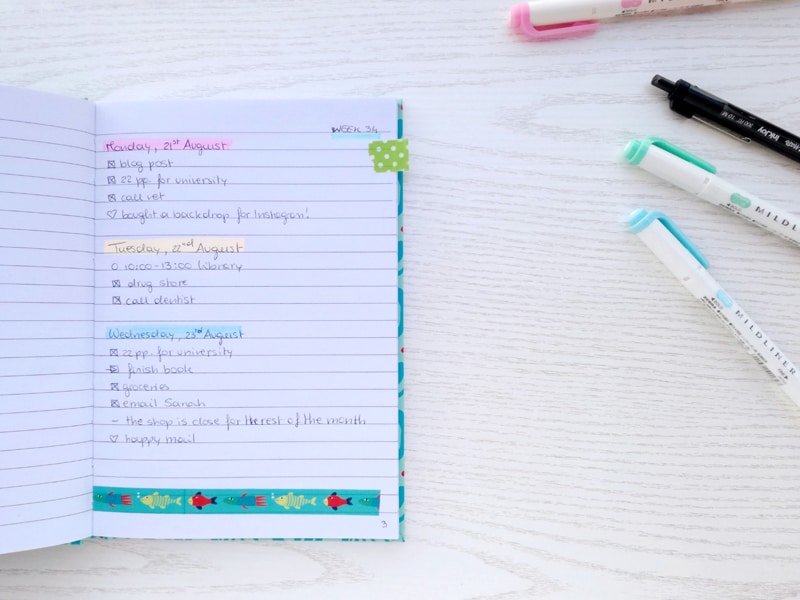 WEEK 34
Monday, 21st August
☒ blog post
☒ 22 pp. for university
☒ call vet
♡ bought a backdrop for Instagram!
Tuesday, 22nd August
O 10:00-13:00 Library
☒ drug store
☒ call dentist
Wednesday, 23rd August
☒ 22 pp. for university
finish book
☒ groceries
☒ email Sarah
- the shop is close for the rest of the month
♡ happy mail
3
InkJoy
MILDL
MILDLINER